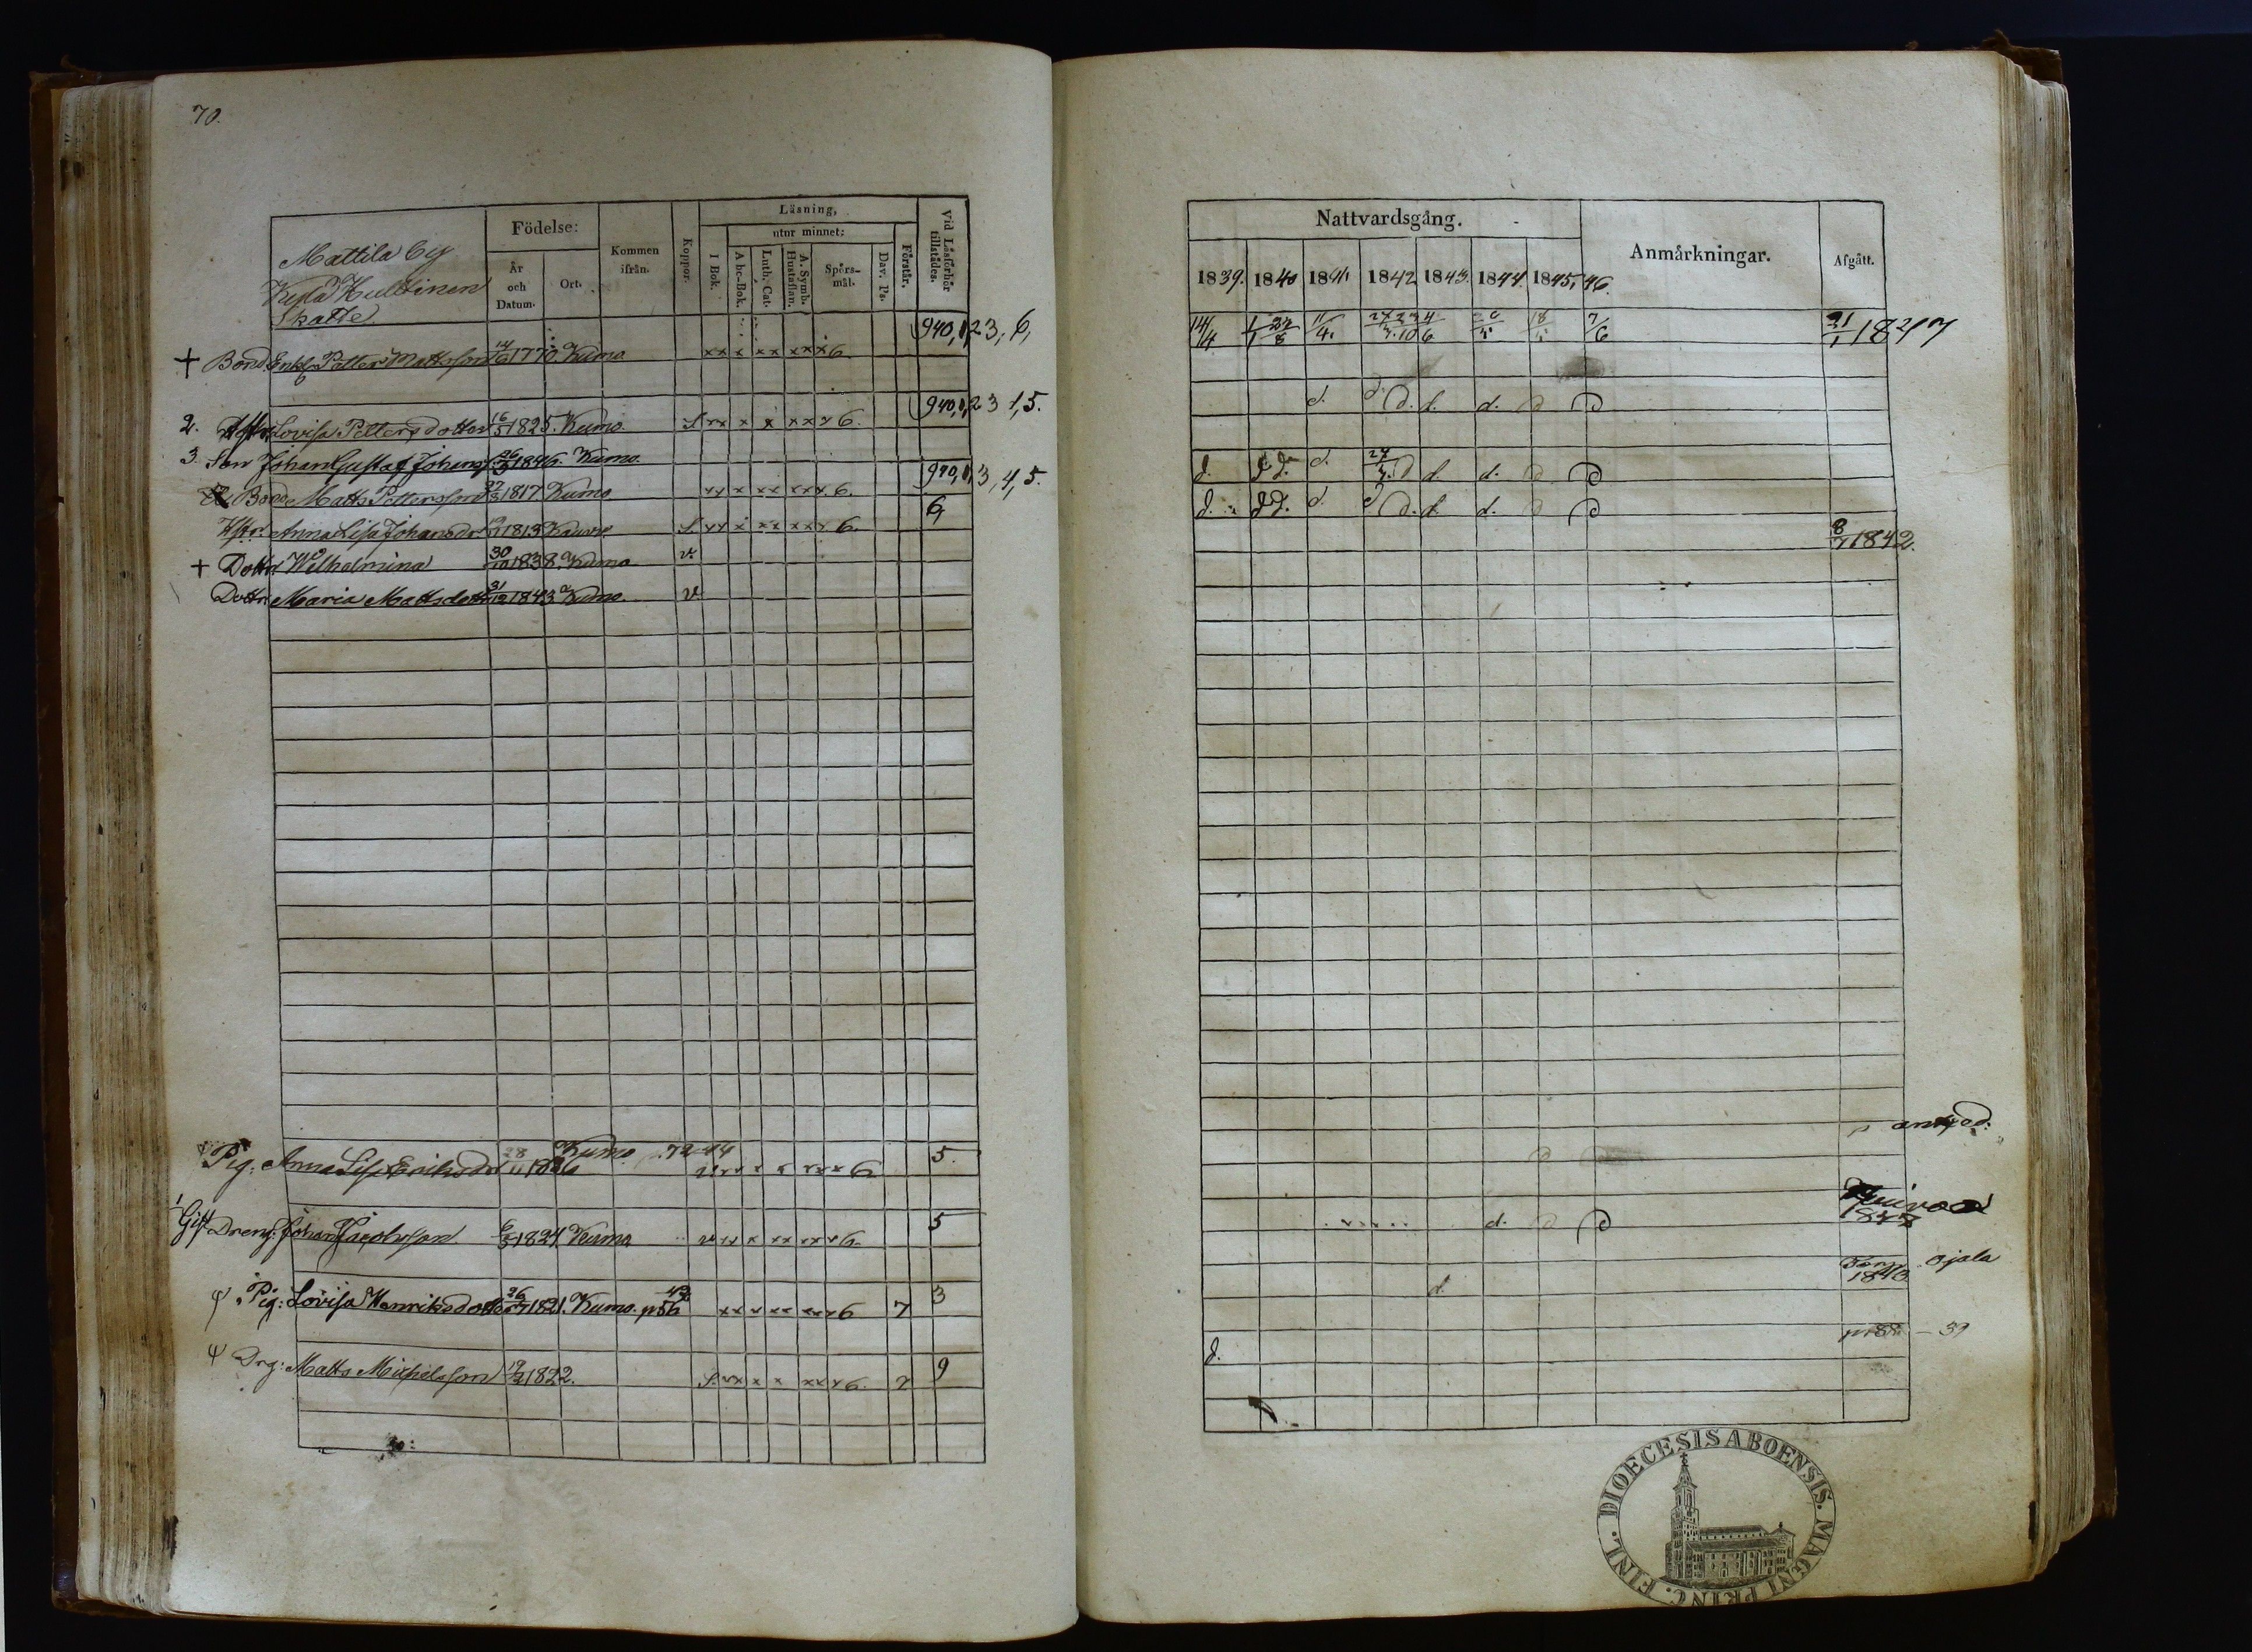 70.
Mattila by
Hulttinen
Skatte
Födelse:
År och Datum.
Ort.
Kommen ifrån.
Koppor.
Läsning,
utur minnet;
I Bok.
Abc-Bok.
Luth. Cat.
A. Symb. Hustaflan.
Spörsmål.
Dav. Ps.
Förstår.
Vid Läsförhör tillstädes.
† Bond Enkl. Petter Mattsson 14/6 1770 Kumo xx x xx xxx 6 940,1,23,6,
2. Hstr. Lovisa Pettersdotter 16/5 1825. Kumo. S xx x x xxx 6. 940,1,23 1,5.
3 Son Johan Gustaf Johans 26/3 1846. Kumo
Bond Matts Pettersson 27/3 1817 Kumo xx x xx xxx 6. 940,1,3,4,5.
Hstr. Anna Lisa Johansdr 1813 S xx x xx xxx 6. 6,
† Dottr Wilhelmina 30/10 1838. Kumo v.
Dottr Maria Mattsdottr 31/12 1843 Kumo. v
Pig. Anna Lisa Eriksdr 28/11 1826 Kumo 72 44 v xx x x xxx 6 5.
Gift Dreng. Johan Jacobsson 6/3 1824 Kumo v xx x xx xxx 6. 5
Pig: Lovisa Henriksdotter 26/7 1821. Kumo. p56 42 xx x xx xxx 6 7 3
Drg: Matts Michelsson 19/2 1822. S. xx x x xxx 6. 7 9
Nattvardsgång.
Anmärkningar.
Afgått.
1839. 1840 1841. 1842 1843. 1844. 1845, 46.
14/4 11/4. 7/6 21/1 1847
d. d d. d. d. d d
d. d d. d. d d. d. d d
d. d d. d. d d. d. d. d d
8/7 1842.
d
d. d d
d. Ojala
1843
d. - 39
DIOECESIS ABOENSIS. MAGNI PRINC. FINL.